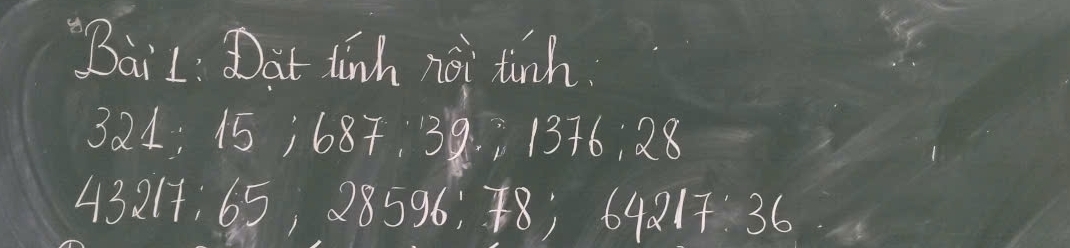 Bài 1: Đặt tính rồi tính:
321 : 15 ; 687 : 39 ; 1376 : 28
43217 : 65 ; 28596 : 78 ; 64217 : 36